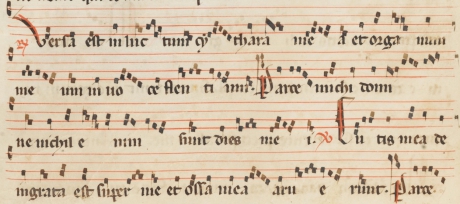 ℟ Versa est in luc tum cy thara me a et orga num
me um in uo ce flen ti um. Parce michi domi
ne nichil e nim sunt dies me i. ℣ Cu tis mea de
nigrata est super me et ossa mea aru e runt. Parce.